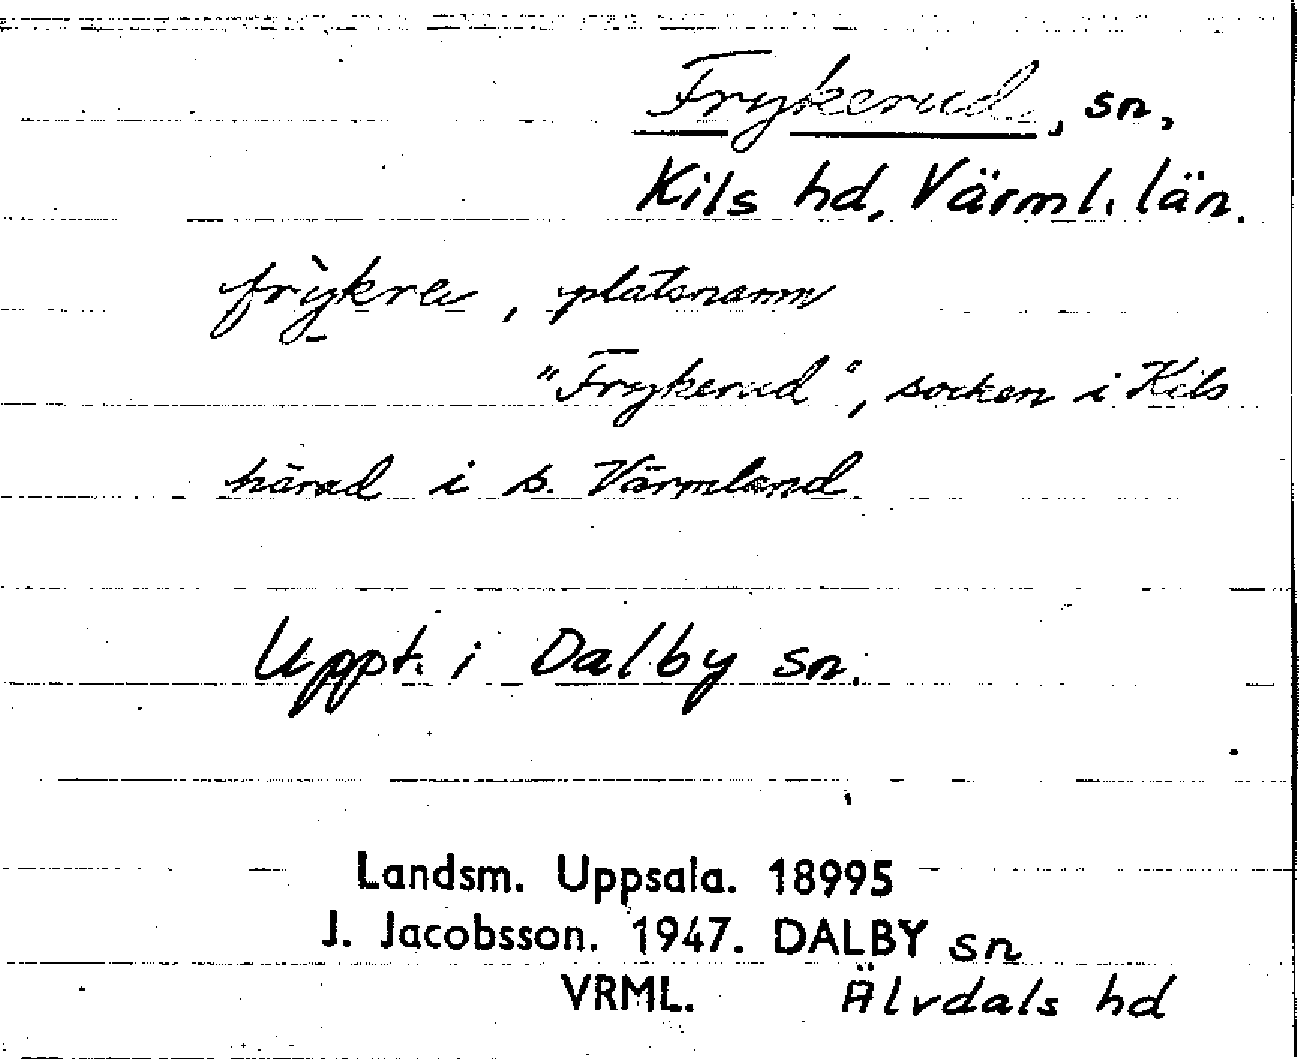 Frykerud, sn,
Kils hd, Värml. län.
frỳkra, platsnamn
"Frykerud", socken i Kils
härad i s. Värmland.
Uppt. i Dalby sn.
Landsm. Uppsala. 18995
J. Jacobsson. 1947. DALBY sn
VRML. Älvdals hd